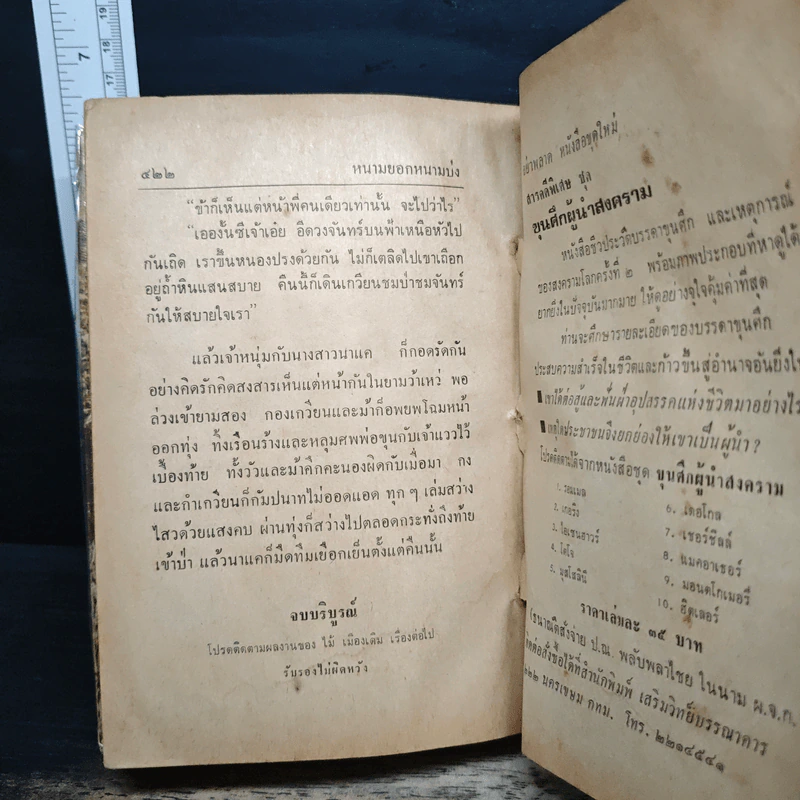 ๔๒๒ หนามยอกหนามบ่ง
“ข้าก็เห็นแต่หน้าพี่คนเดียวเท่านั้น จะไปว่าไร”
“เอองั้นซีเจ้าเอ๋ย อีดวงจันทร์บนฟ้าเหนือหัวไป
กันเถิด เราขึ้นหนองปรงด้วยกัน ไม่ก็เตลิดไปเขาเถือก
อยู่ถ้ำหินแสนสบาย คืนนี้ก็เดินเกวียนชมป่าชมจันทร์
กันให้สบายใจเรา”
แล้วเจ้าหนุ่มกับนางสาวนาแค ก็กอดรัดกัน
อย่างคิดรักคิดสงสารเห็นแต่หน้ากันในยามว้าเหว่ พอ
ล่วงเข้ายามสอง กองเกวียนและม้าก็อพยพโฉมหน้า
ออกทุ่ง ทิ้งเรือนร้างและหลุมศพพ่อขุนกับเจ้าแววไว้
เบื้องท้าย ทั้งวัวและม้าคึกคะนองผิดกับเมื่อมา กง
และกำเกวียนก็กัมปนาทไม่ออดแอด ทุก ๆ เล่มสว่าง
ไสวด้วยแสงคบ ผ่านทุ่งก็สว่างไปตลอดกระทั่งถึงท้าย
เข้าป่า แล้วนาแคก็มืดทึมเยือกเย็นตั้งแต่คืนนั้น
จบบริบูรณ์
โปรดติดตามผลงานของ ไม้ เมืองเดิม เรื่องต่อไป
รับรองไม่ผิดหวัง
อย่าพลาด หนังสือชุดใหม่
สารคดีพิเศษ ชุด
ขุนศึกผู้นำสงคราม
หนังสือชีวประวัติบรรดาขุนศึก และเหตุการณ์
ของสงครามโลกครั้งที่ ๒ พร้อมภาพประกอบที่หาดูได้
ยากยิ่งในปัจจุบันมากมาย ให้ดูอย่างจุใจคุ้มค่าที่สุด
ท่านจะศึกษารายละเอียดของบรรดาขุนศึก
ประสบความสำเร็จในชีวิตและก้าวขึ้นสู่อำนาจอันยิ่งใ
■เขาได้ต่อสู้และฟันฝ่าอุปสรรคแห่งชีวิตมาอย่างไร
■เหตุใดประชาชนจึงยกย่องให้เขาเป็นผู้นำ?
โปรดติดตามได้จากหนังสือชุด ขุนศึกผู้นำสงคราม
1. รอมเมล
2. เกอริง
3. ไอเซนฮาวร์
4. โตโจ
5. มุสโสลินี
6. เดอโกล
7. เชอร์ชิลล์
8. แมคอาเธอร์
9. มอนตโกเมอรี่
10. ฮิตเลอร์
ราคาเล่มละ ๓๕ บาท
(ธนาณัติสั่งจ่าย ป.ณ. พลับพลาไชย ในนาม ผ.จ.ก.
ติดต่อสั่งซื้อได้ที่สำนักพิมพ์ เสริมวิทย์บรรณาคาร
๒๒๒ นครเขษม กทม. โทร. ๒๒๑๔๕๔๑
7
17
18
19